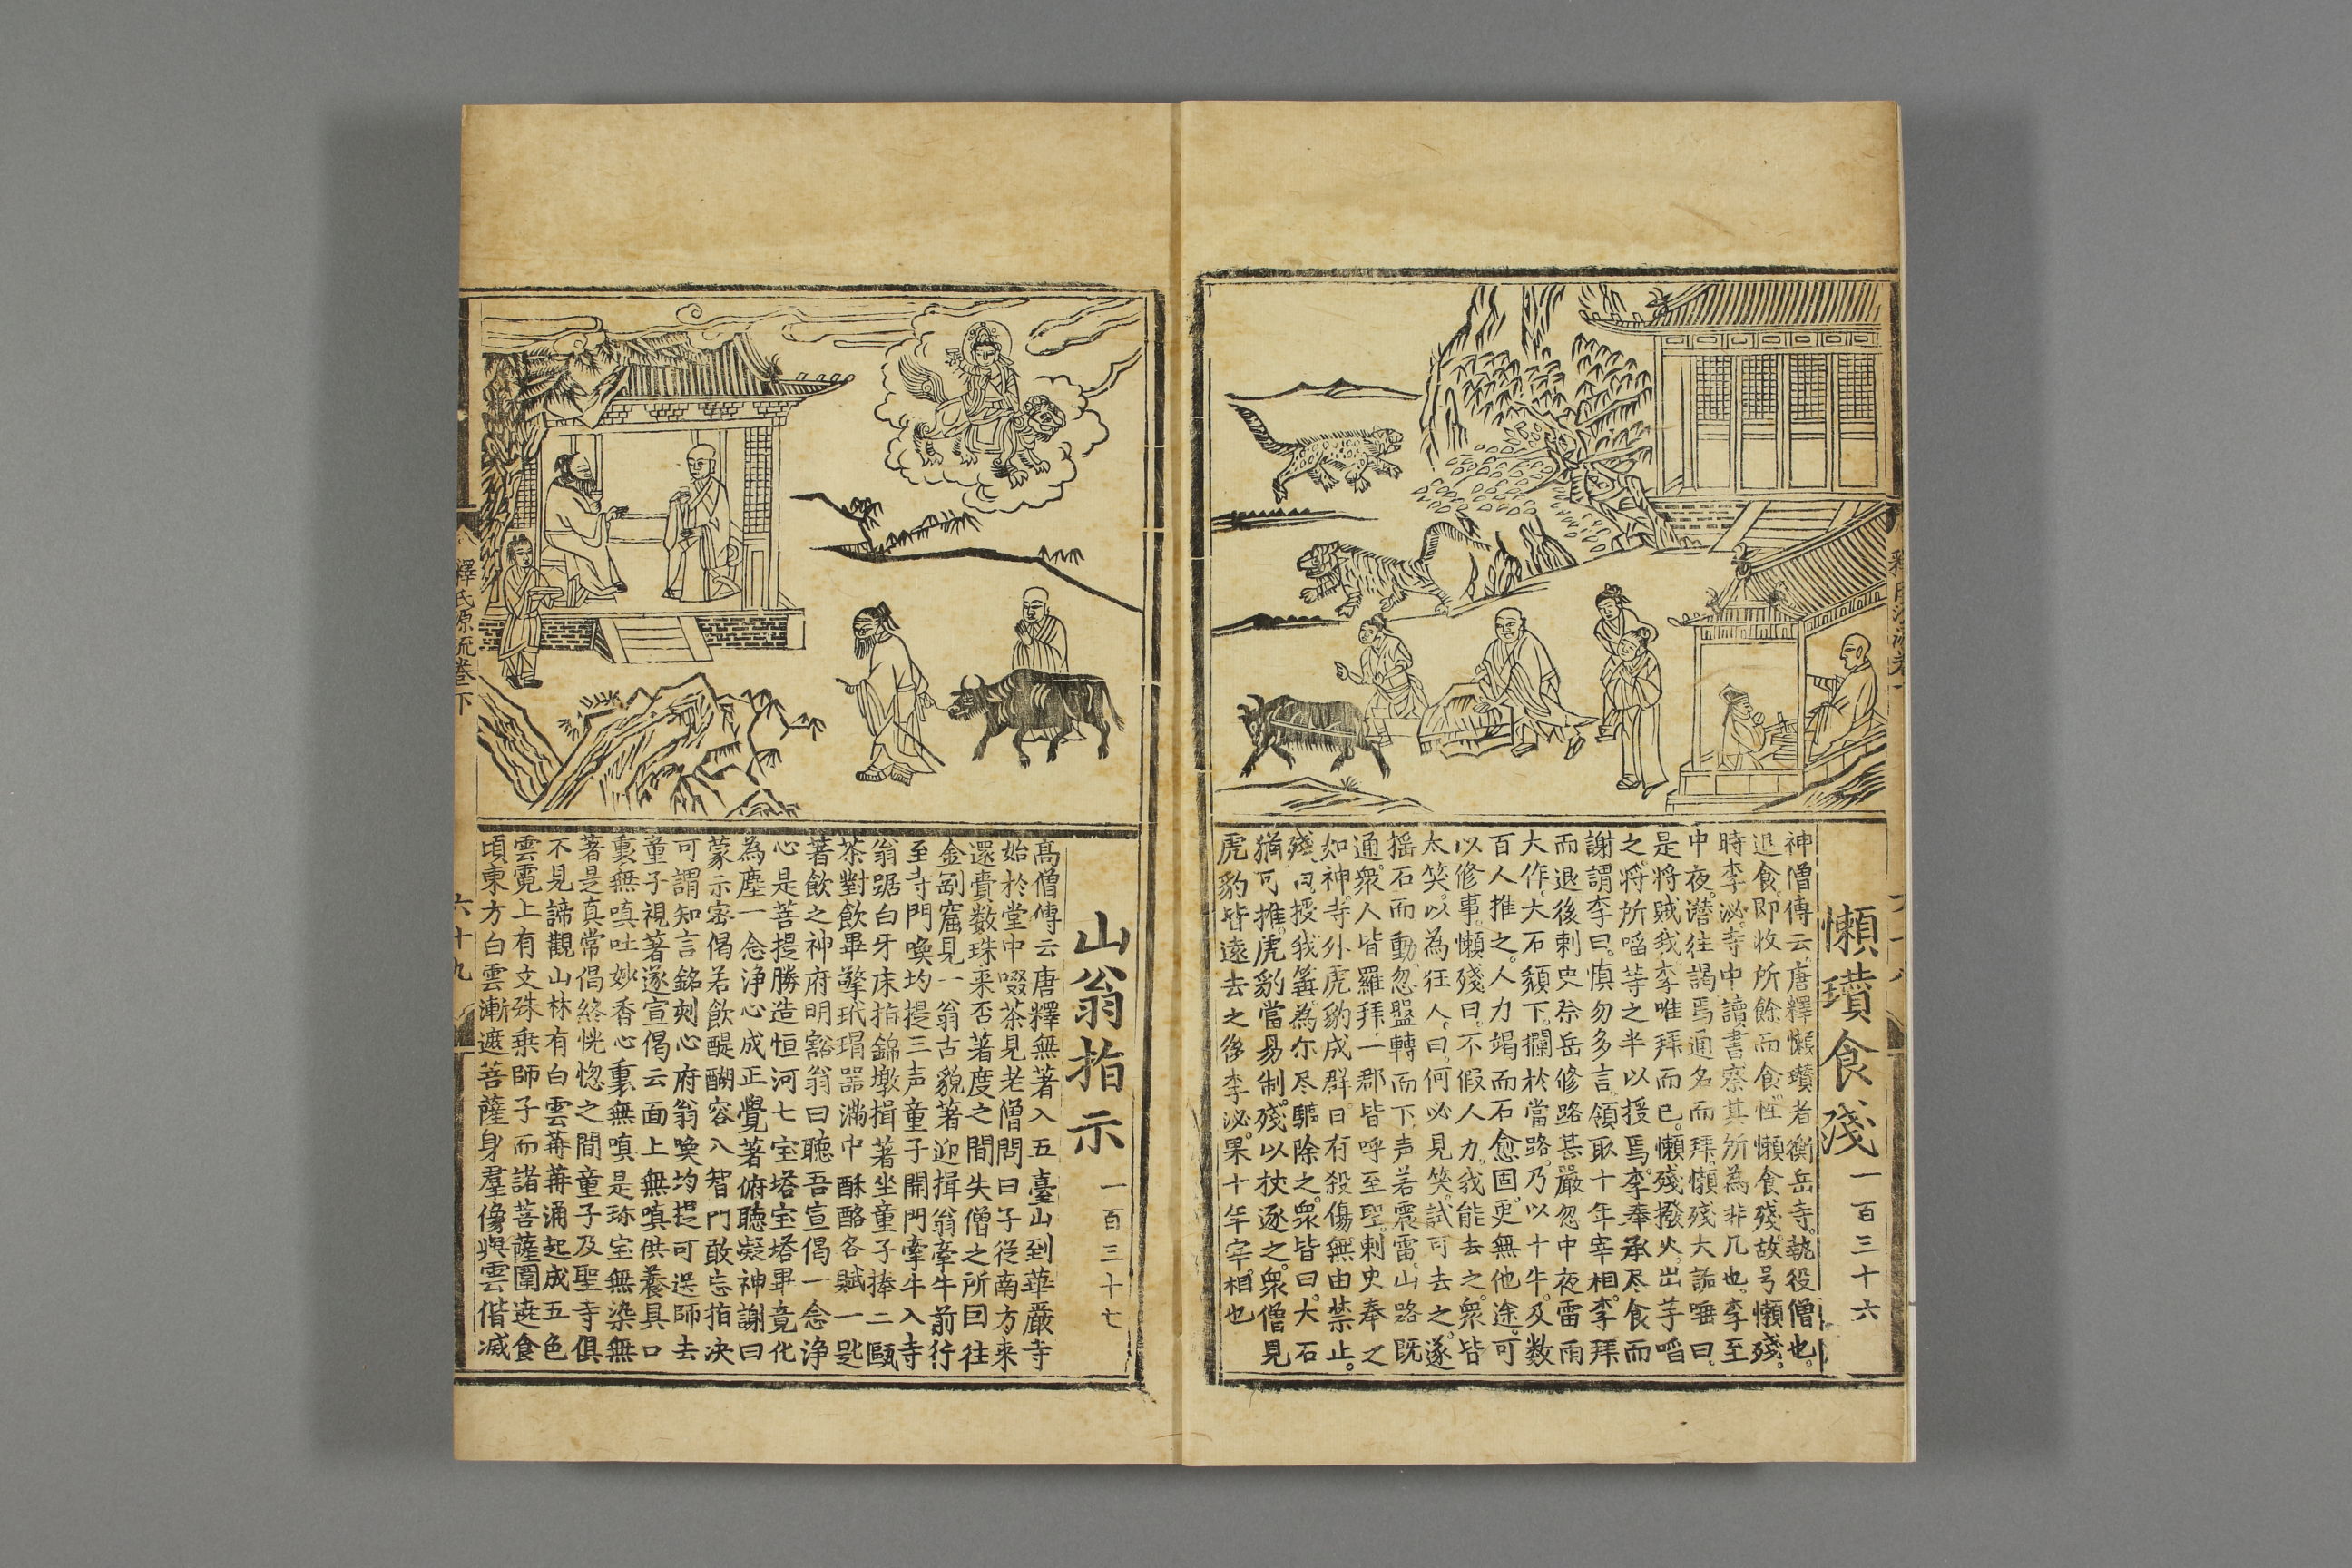 懶瓚食殘一百三十六
神僧傳云唐釋懶瓚者衡岳寺執役僧也
退食即收所餘而食性懶食殘故号懶殘
時李泌寺中讀書察其所為非凡也李至
中夜潜往謁焉通名而拜懶殘大詬唾曰
是将賊我李唯拜而已懶殘撥火出芋啗
之将所啗芋之半以授焉李奉承尽食而
謝謂李曰慎勿多言領取十年宰相李拜
而退後刺史祭岳修路甚嚴忽中夜雷雨
大作大石頹下攔於當路乃以十牛及数
百人推之人力竭而石愈固更無他途可
以修事懶殘曰不假人力我能去之衆皆
大笑以為狂人曰何必見笑試可去之遂
摇石而動忽盤轉而下声若震雷山路既
通衆人皆羅拜一郡皆呼至聖刺史奉之
如神寺外虎豹成群日有殺傷無由禁止
殘曰授我箠為尔尽驅除之衆皆曰大石
猶可推虎豹當易制殘以杖逐之衆僧見
虎豹皆遠去之後李泌果十年宰相也
山翁指示一百三十七
髙僧傳云唐釋無著入五臺山到華嚴寺
始於堂中啜茶見老僧問曰子從南方來
還賷数珠来否著度之間失僧之所囙往
金剛窟見一翁古貌著迎揖翁牽牛前行
至寺門喚均提三声童子開門牽牛入寺
翁踞白牙床指錦墩揖著坐童子捧二甌
茶對飲畢擎玳瑁噐滿中酥酪各賦一匙
著飲之神府明豁翁曰聽吾宣偈一念浄
心是菩提勝造恒河七宝塔宝塔畢竟化
為塵一念浄心成正覺著俯聽凝神謝曰
蒙示宻偈若飲醍醐容入智門敢忘指决
可謂知言銘刻心府翁喚均提可送師去
童子視著遂宣偈云面上無嗔供養具口
裏無嗔吐妙香心裏無嗔是珎宝無染無
著是真常偈終恍惚之間童子及聖寺俱
不見諦觀山林有白雲苒苒涌起成五色
雲霓上有文殊乗師子而諸菩薩圍遶食
頃東方白雲漸遮菩薩身羣像與雲偕滅
釋氏源流卷下
六十九